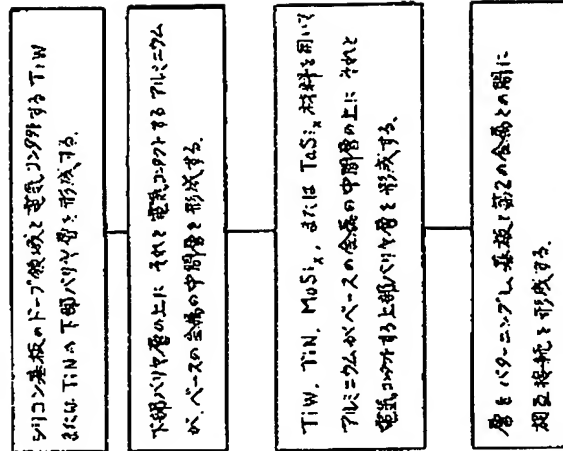 シリコン基板のドープ領域と電気コンタクトするTiW
またはTiNの下部バリヤ層を形成する。
下部バリヤ層の上に それと電気コンタクトするアルミニウム
が、ベースの金属の中間層を形成する。
TiW, TiN, MoSiₓ, または TaSiₓ 材料を用いて
アルミニウムがベースの金属の中間層の上に それと
電気コンタクトする上部バリヤ層を形成する。
層をパターニングし、基板と第2の金属との間に
相互接続を形成する。